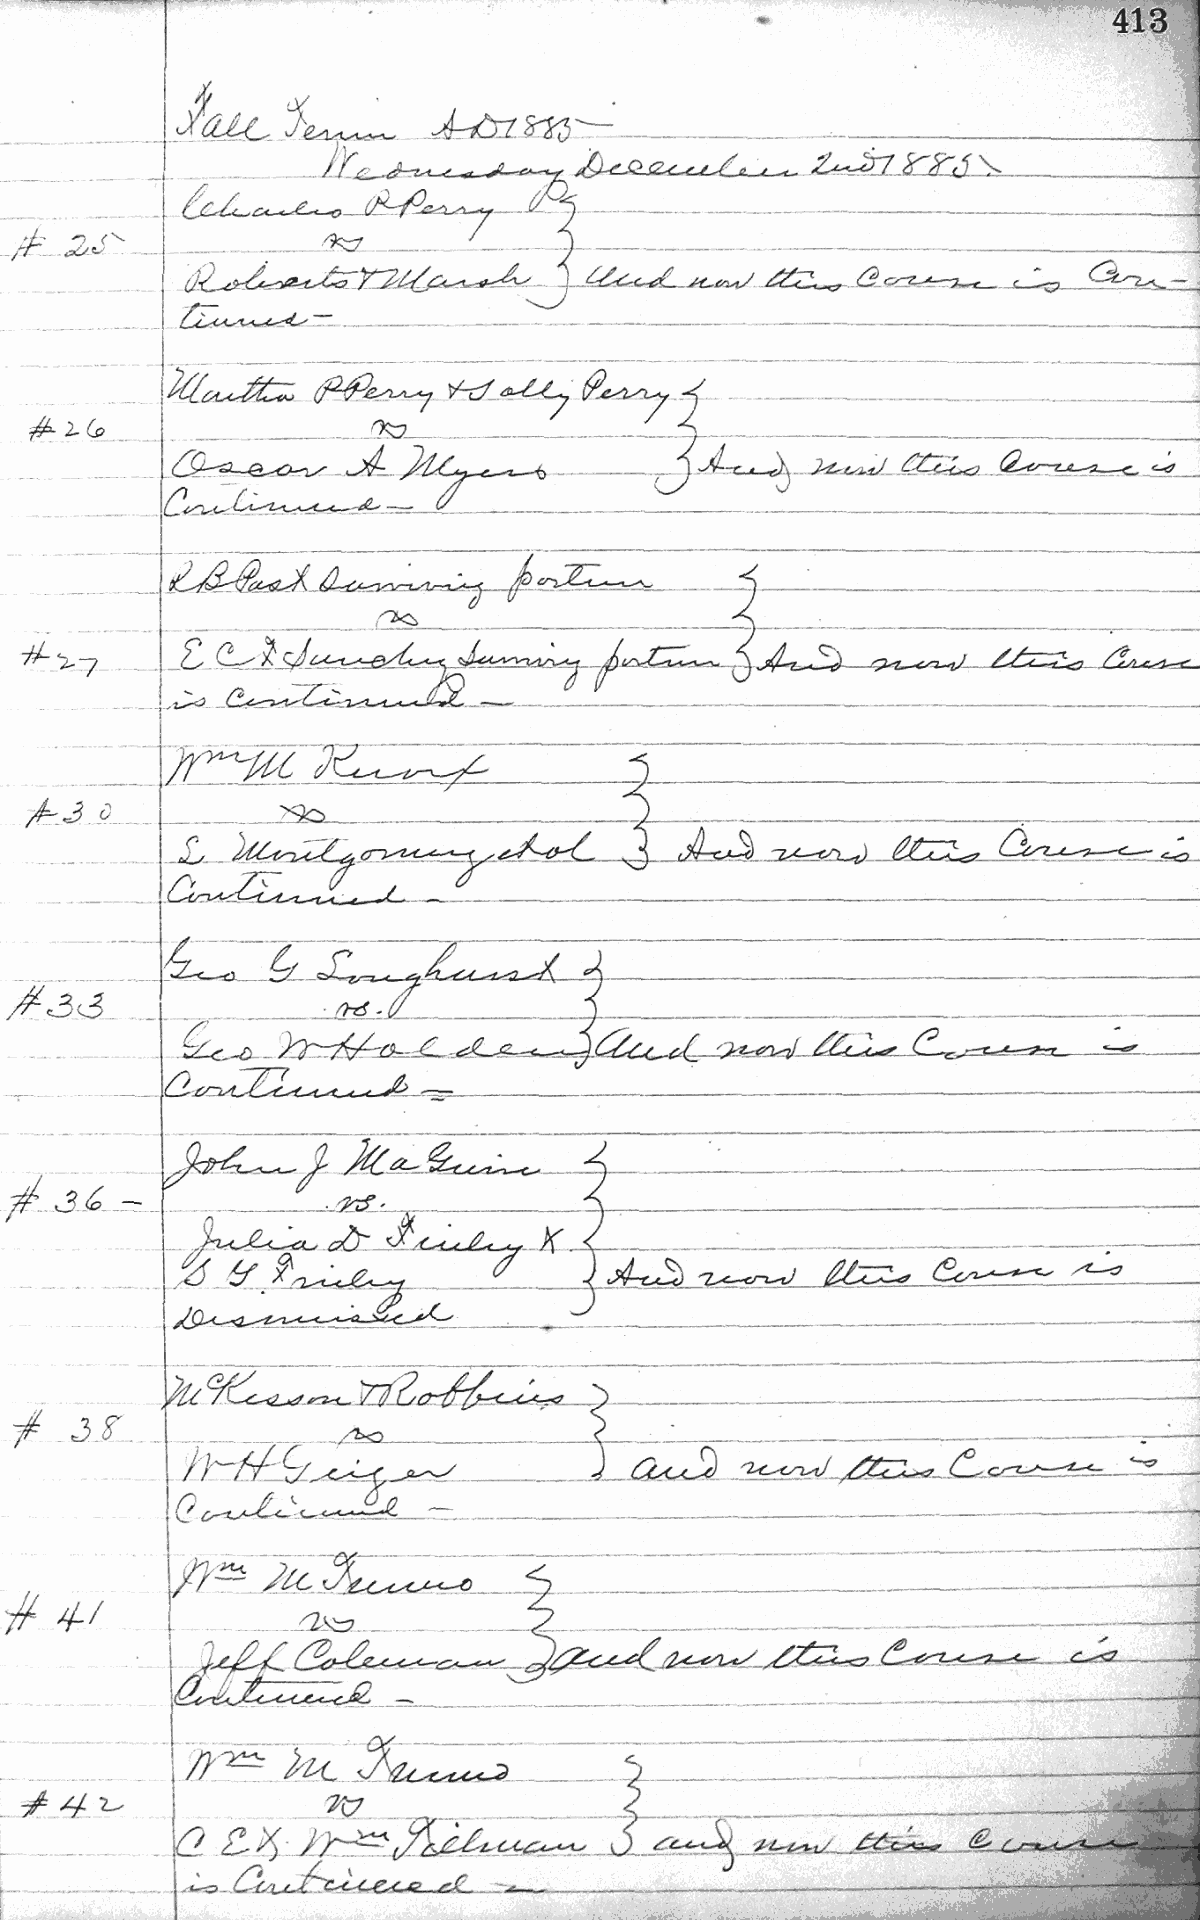 413
Fall Term AD 1885
Wednesday December 2nd 1885.
Charles P Perry
# 25 vs
Roberts & Marsh } And now this Cause is Con-
tinued -
Martha P Perry & Sally Perry
#26 vs
Oscar A Myers } And now this Cause is
Continued -
R B Post Surviving partner
vs
#27 E C F Sanchez Surviving partner } And now this Cause
is Continued -
Wm M Knox
#30 vs
L Montgomery et al } And now this Cause is
Continued -
Geo G Longhurst
#33 vs.
Geo W Holden } And now this Cause is
Continued =
John J MaGuire
# 36 - vs.
Julia D Finley &
S G Finley } And now this Cause is
Dismissed
McKesson & Robbins
# 38 vs
W H Geiger } And now this Cause is
Continued -
Wm M
# 41 vs
Jeff Coleman } And now this Cause is
Continued -
Wm M
#42 vs
C E & Wm Tillman } and now this Cause
is Continued -